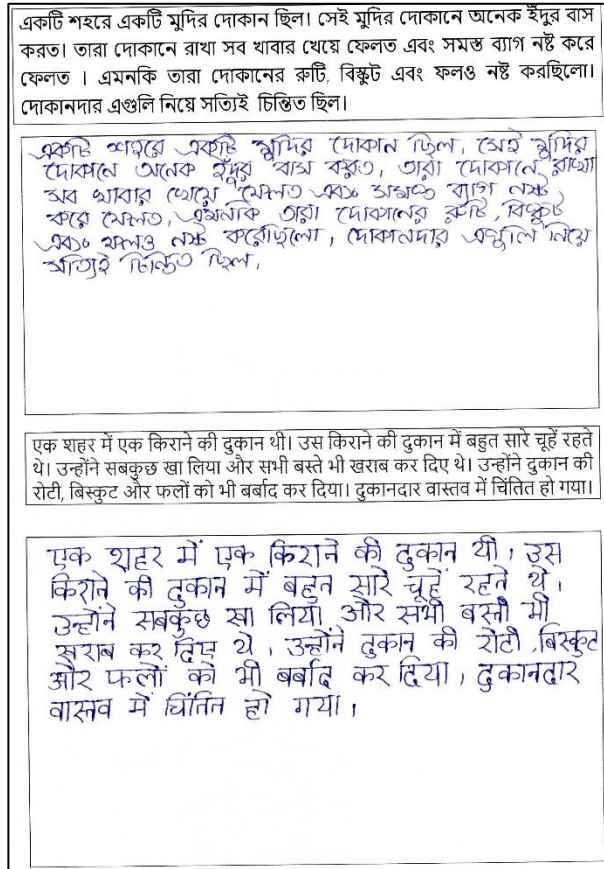 একটি শহরে একটি মুদির দোকান ছিল। সেই মুদির দোকানে অনেক ইঁদুর বাস
করত। তারা দোকানে রাখা সব খাবার খেয়ে ফেলত এবং সমস্ত ব্যাগ নষ্ট করে
ফেলত । এমনকি তারা দোকানের রুটি, বিস্কুট এবং ফলও নষ্ট করছিলো।
দোকানদার এগুলি নিয়ে সত্যিই চিন্তিত ছিল।
একটি শহরে একটি মুদির দোকান ছিল, সেই মুদির
দোকানে অনেক ইঁদুর বাস করত, তারা দোকানে রাখা
সব খাবার খেয়ে ফেলত এবং সমস্ত ব্যাগ নষ্ট
করে ফেলত, এমনকি তারা দোকানের রুটি, বিস্কুট
এবং ফলও নষ্ট করেছিলো, দোকানদার এগুলি নিয়ে
সত্যিই চিন্তিত ছিল,
एक शहर में एक किराने की दुकान थी। उस किराने की दुकान में बहुत सारे चूहें रहते
थे। उन्होंने सबकुछ खा लिया और सभी बस्ते भी खराब कर दिए थे। उन्होंने दुकान की
रोटी, बिस्कुट और फलों को भी बर्बाद कर दिया। दुकानदार वास्तव में चिंतित हो गया।
एक शहर में एक किराने की दुकान थी, उस
किराने की दुकान में बहुत सारे चूहें रहते थे,
उन्होंने सबकुछ खा लिया और सभी बस्ते भी
खराब कर दिए थे, उन्होंने दुकान की रोटी, बिस्कुट
और फलों को भी बर्बाद कर दिया, दुकानदार
वास्तव में चिंतित हो गया,